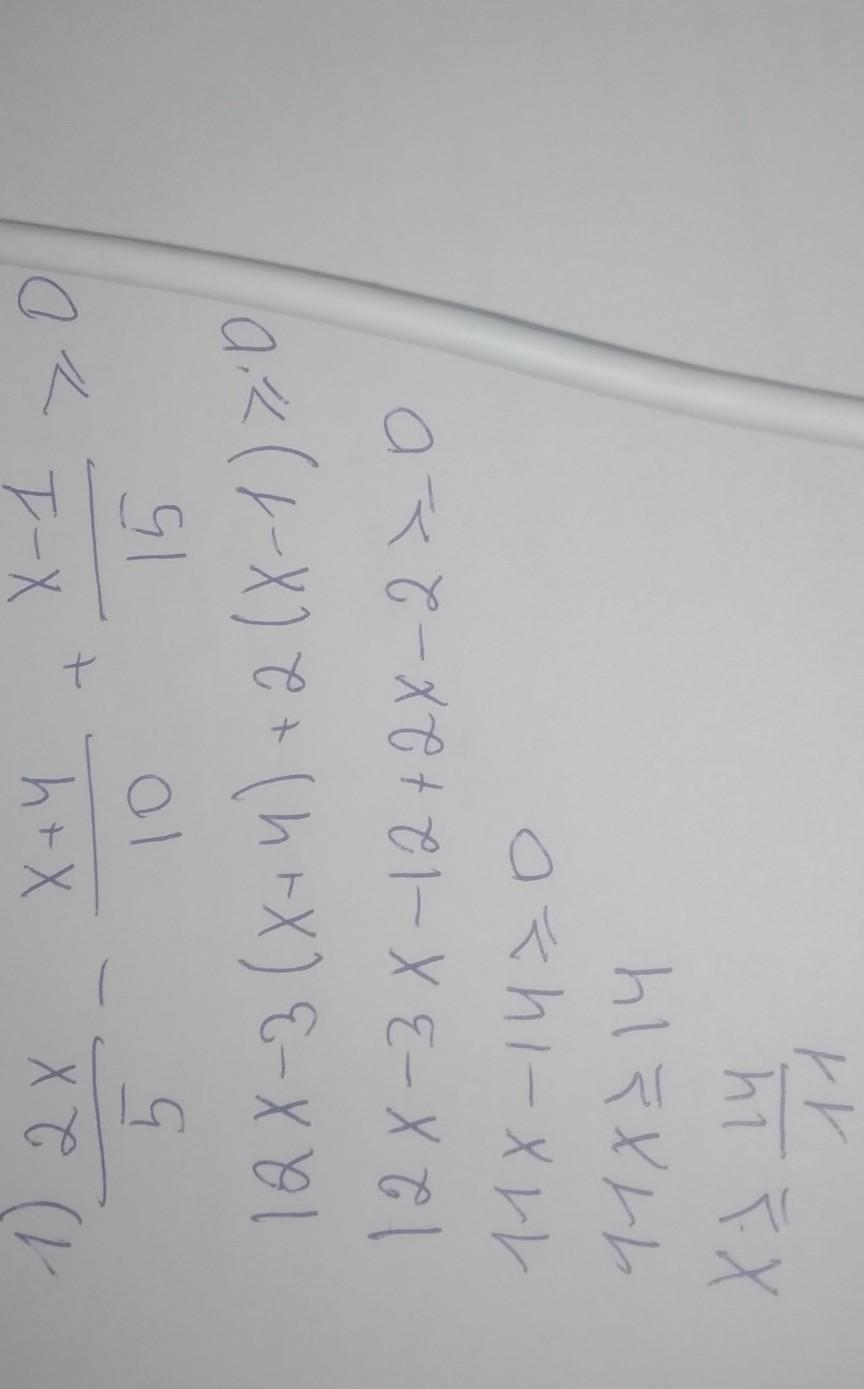 1) 2x/5 - x+4/10 + x-1/15 ⩾ 0
12x-3(x+4)+2(x-1)⩾0
12x-3x-12+2x-2⩾0
11x-14⩾0
11x⩾14
x⩾ 14/11